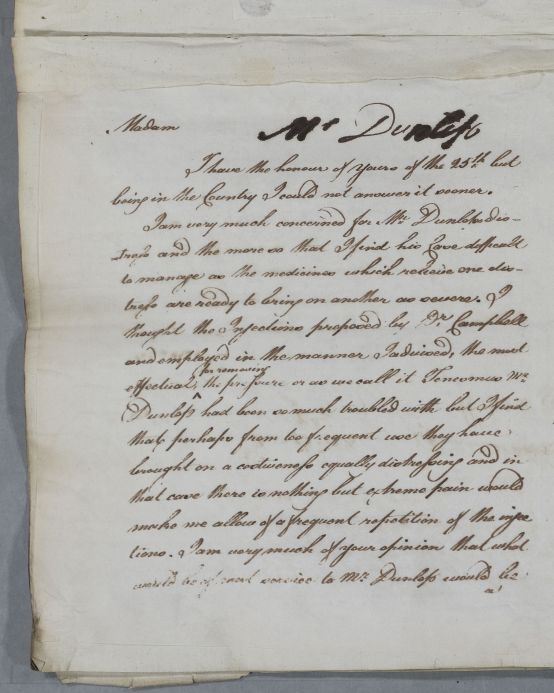 Mr Dunlop
Madam
I have the honour of yours of the 25th. but
being in the Country I could not answer it sooner.
I am very much concerned for Mr. Dunlops dis-
tress and the more so that I find his Case difficult
to manage as the medicines which relieve one dis-
tress are ready to bring on another as severe. I
thought the Injections proposed by Dr. Campbell
and employed in the manner I advised, the most
for removing
effectual, the pressure or as we call it Tenesmus Mr.
Dunlop had been so much troubled with but I find
that perhaps from too frequent use they have
brought on a costiveness equally distressing and in
that case there is nothing but extreme pain would
make me allow of a frequent repetition of the injec
tions. I am very much of your opinion that what
would be of most service to Mr. Dunlop would be
a